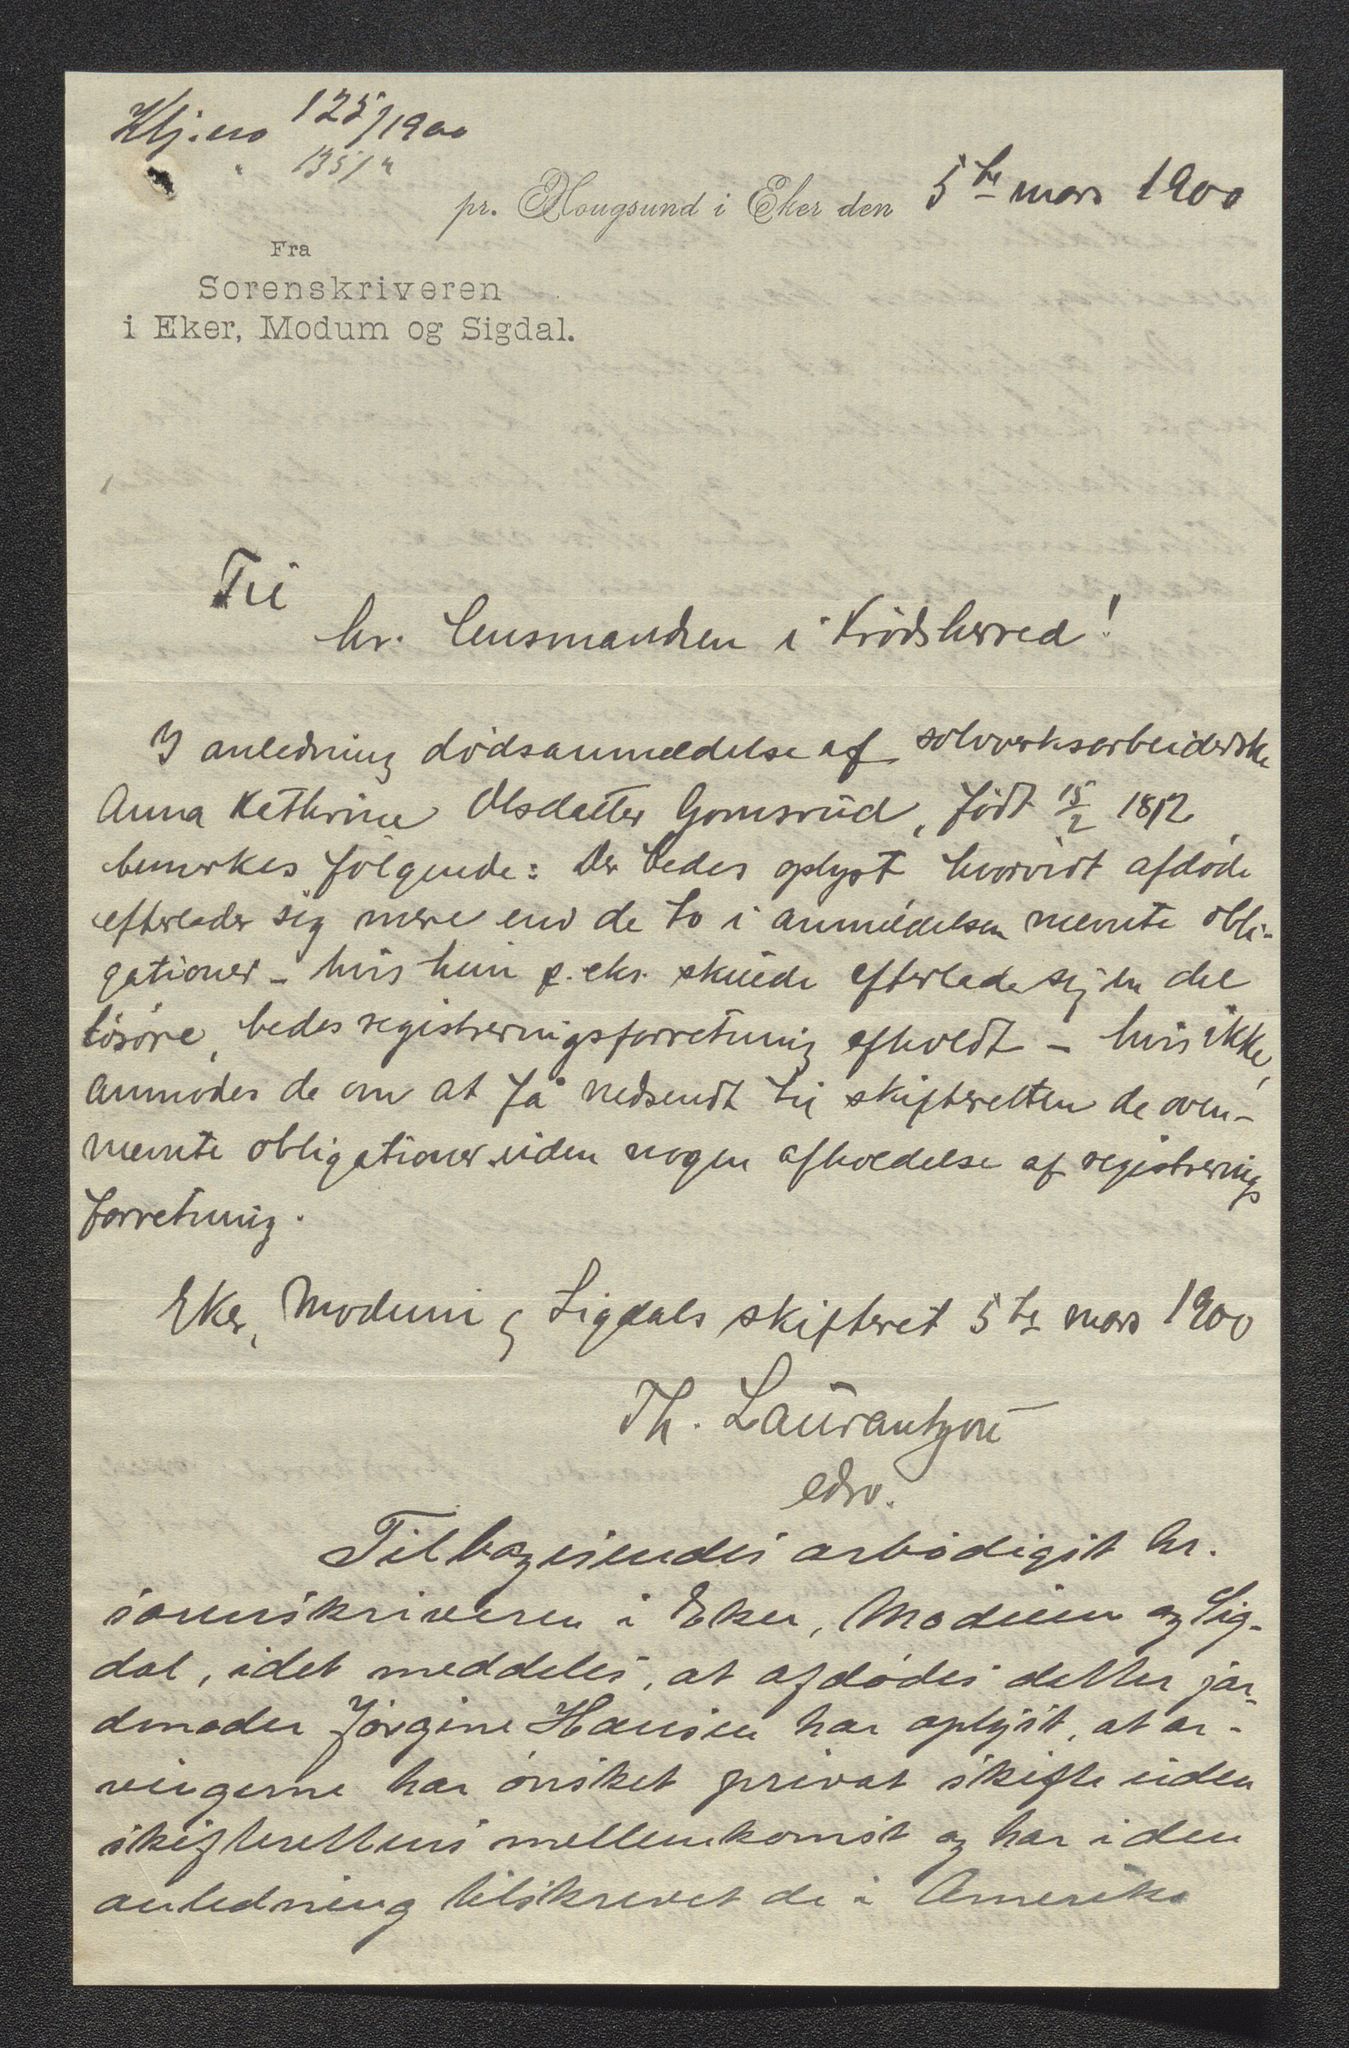 Kbj.no 125/1900
" 135/"
pr. Hougsund i Eker den 5te mars 1900
Fra
Sorenskriveren
i Eker, Modum og Sigdal.
Til
hr. lensmanden i Krødsherred!
I anledning dødsanmeldelse af sølvverksarbeiderske
Anna Kathrine Olsdatter Gomsrud, født 15/2 1812
bemerkes følgende: Der bedes oplyst hvorvidt afdøde
efterlader sig mere end de to i anmeldelsen nævnte obli-
gationer - hvis hun f. eks. skulde efterlade sig en del
løsøre, bedes registreringsforretning afholdt - hvis ikke,
anmodes de om at få nedsendt til skifteretten de oven-
nævnte obligationer uden nogen afholdelse af registrerings
forretning.
Eker, Modum og Sigdals skifteret 5te mars 1900
Th. Laurantzon
edsv.
Tilbagesendes ærbødigst hr.
sorenskriveren i Eker, Modum og Sig-
dal, idet meddeles, at afdødes datter jor-
dmoder Jørgine Hansen har oplyst, at ar-
vingerne har ønsket privat skifte uden
skifterettens mellemkomst og har i den
anledning tilskrevet de i Amerika